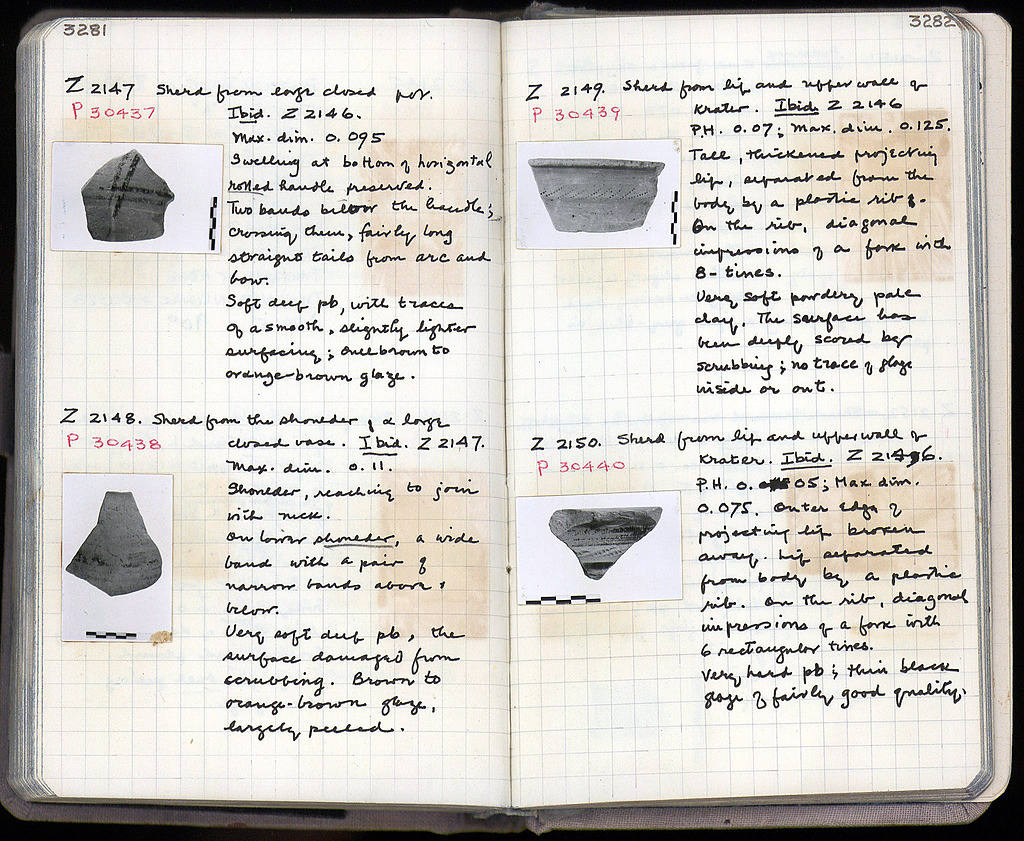 3281
Z 2147 Sherd from large closed pot.
P 30437
Ibid. Z 2146.
Max. dim. 0.095
Swelling at bottom of horizontal
rolled handle preserved.
Two bands below the handle;
crossing them, fairly long
straight tails from arc and
bow.
Soft deep pb, with traces
of a smooth, slightly lighter
surfacing; dull brown to
orange-brown glaze.
Z 2148. Sherd from the shoulder of a large
P 30438
closed vase. Ibid. Z 2147.
Max. dim. 0.11.
Shoulder, reaching to join
with neck.
On lower shoulder, a wide
band with a pair of
narrow bands above &
below.
Very soft deep pb, the
surface damaged from
scrubbing. Brown to
orange-brown glaze,
largely peeled.
3282
Z 2149. Sherd from lip and upper wall of
P 30439
krater. Ibid. Z 2146
P.H. 0.07; Max. dim. 0.125.
Tall, thickened projecting
lip, separated from the
body by a plastic rib.
On the rib, diagonal
impressions of a fork with
8-tines.
Very soft powdery pale
clay. The surface has
been deeply scored by
scrubbing; no trace of glaze
inside or out.
Z 2150. Sherd from lip and upper wall of
P 30440
krater. Ibid. Z 2146.
P.H. 0.05; Max dim.
0.075. Outer edge of
projecting lip broken
away. Lip separated
from body by a plastic
rib. On the rib, diagonal
impressions of a fork with
6 rectangular tines.
Very hard pb; thin black
glaze of fairly good quality.